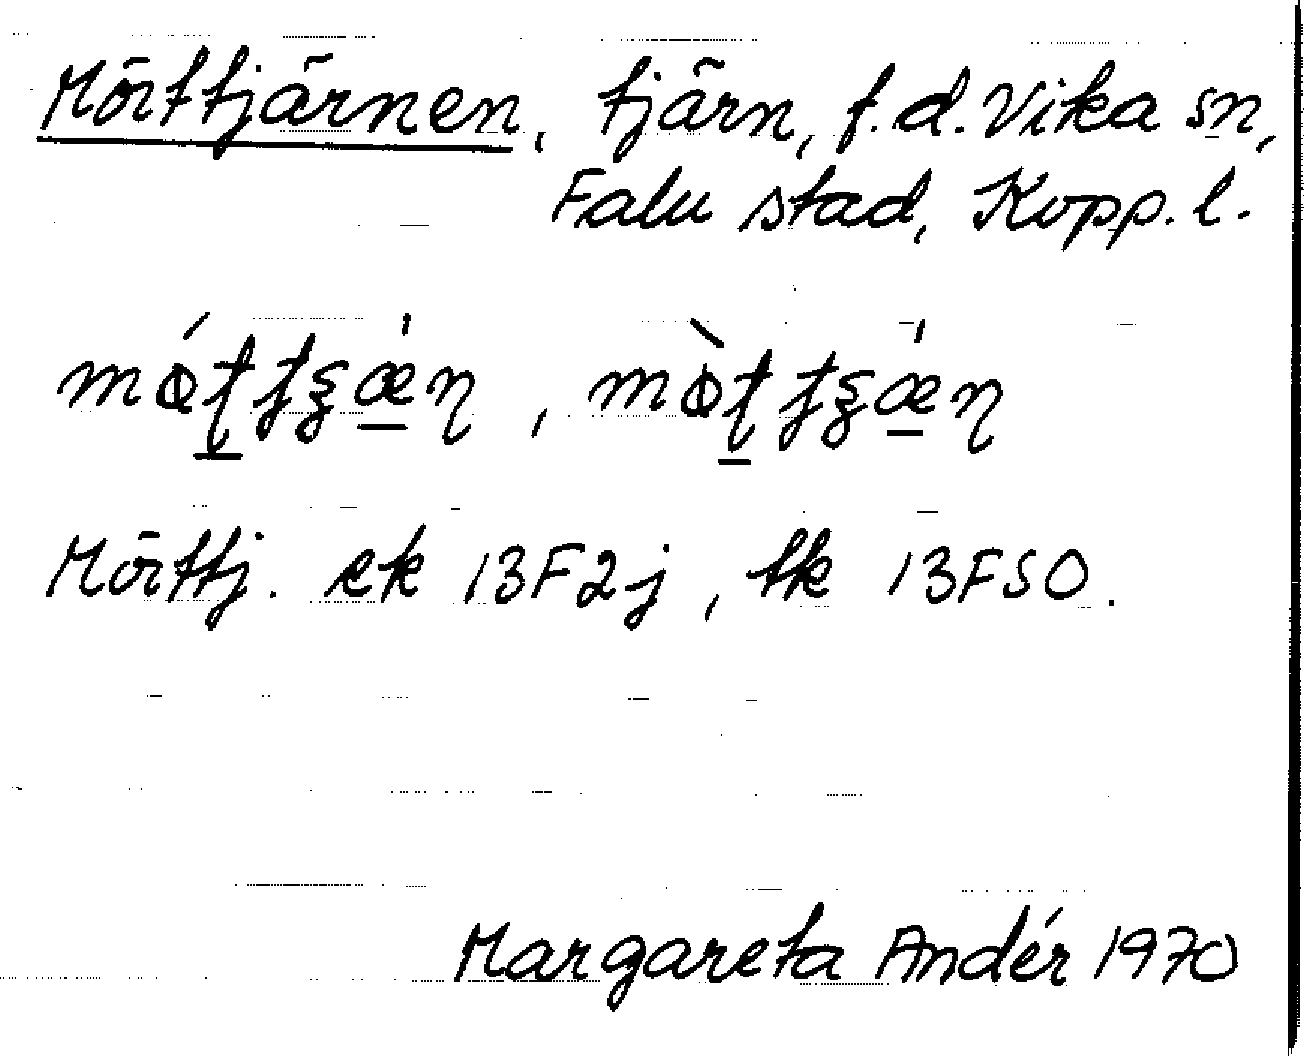 Mörttjärnen, tjärn, f.d. Vika sn,
Falu stad, Kopp. l.
Mörttj. ek 13F2j, tk 13FSO.
Margareta Andér 1970